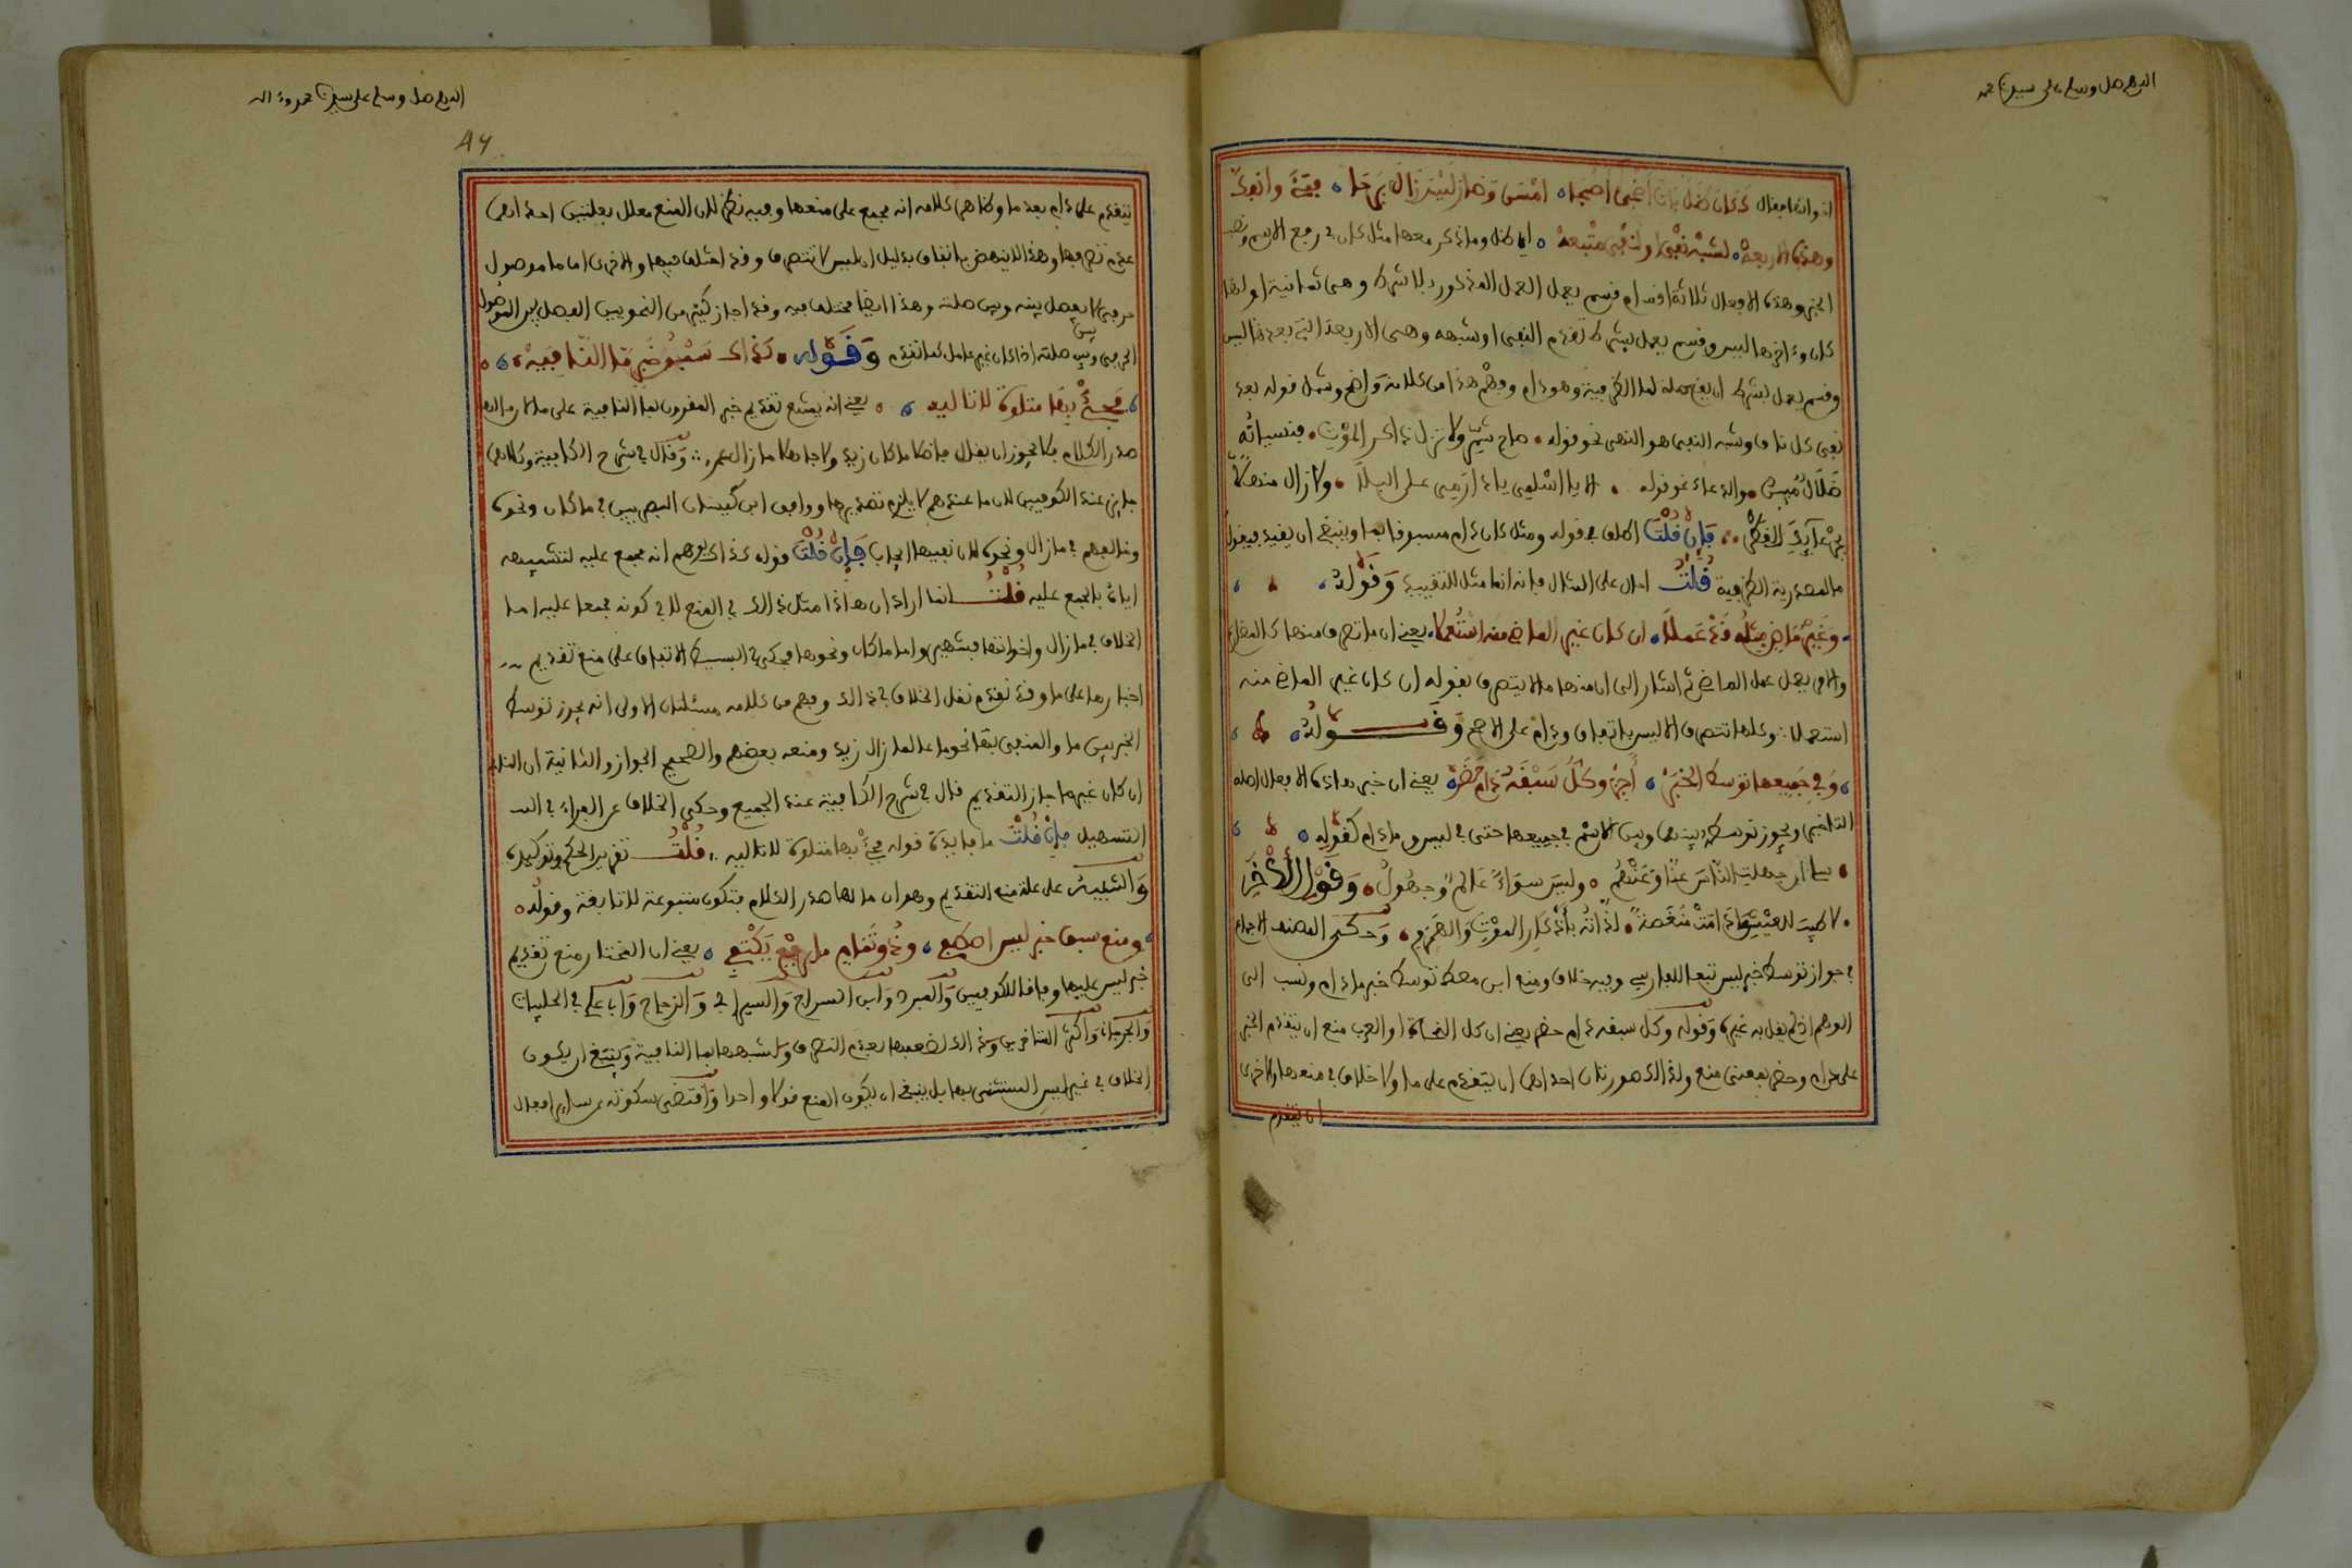 اللهم صل وسلم على سيدنا محمد
اخواتها فقال ككان ظل بات اضحى اصبحا امسى وصار ليس زال برحا فتئ وانفك
وهذي الاربعه لشبه نفي او لنفي متبعه اي ظل وما ذكر معها مثل كان في رفع الاسم ونصب
الخبر وهذه الافعال ثلاثة اقسام قسم يعمل العمل المذكور بلا شرط وهي ثمانية اولها
كان وءاخرها ليس وقسم يعمل بشرط تقدم النفي او شبهه وهي الاربعة التي بعد ليس
وقسم يعمل بشرط ان يقع صلة لما الظرفية وهو دام وفهم هذا من كلامه واضح وشمل قوله بعد
نفي كل ناف وشبه النفي هو النهي نحو قوله صاح شمر ولا تزل ذاكر الموت فنسيانه
ضلال مبين والدعاء نحو قوله الا يا اسلمي يا دارمي على البلا ولا زال منهلا
بجرعائك القطر فإن قلت اطلق في قوله ومثل كان دام مسبوقا بما وينبغي ان يقيد فيقول
ما المصدرية الظرفية قلت احال على المثال فانه انما مثل للتقييد وقوله
وغير ماض مثله قد عملا ان كان غير الماض منه استعملا يعني ان ما تصرف منها كالمضارع
والامر يعمل عمل الماضي ثم اشار الى ان منها ما لا يتصرف بقوله ان كان غير الماض منه
استعملا وكلها تتصرف الا ليس باتفاق ودام على الاصح وقوله
وفي جميعها توسط الخبر أجز وكل سبقه دام حظر يعني ان خبر هذه الافعال اصله
التاخير ويجوز توسطه بينها وبين الاسم في جميعها حتى في ليس وما دام كقوله
سلي ان جهلت الناس عنا وعنهم وليس سواء عالم وجهول وقول الآخر
لا طيب للعيش ما دامت منغصة لذاته بادكار الموت والهرم وحكى المصنف الاجماع
في جواز توسط خبر ليس تبعا للفارسي وفيه خلاف ومنع ابن معط توسط خبر ما دام ونسب الى
الوهم اذ لم يقل به غيره وقوله وكل سبقه دام حظر يعني ان كل النحاة او العرب منع ان يتقدم الخبر
على دام وحظر بمعنى منع ولذلك صورتان احداهما ان يتقدم على ما ولا خلاف في منعها والاخرى
ان يتقدم
اللهم صل وسلم على سيدنا محمد وءاله
٨٦
يتقدم على دام بعد ما وظاهر كلامه انه مجمع على منعها وفيه نظر لان المنع معلل بعلتين احداهما
عدم تصرفها وهذا لا ينهض باتفاق بدليل ان ليس لا تتصرف وقد اختلف فيها والاخرى ان ما موصول
حرفي لا يفصل بينه وبين صلته وهذا ايضا مختلف فيه وقد اجاز كثير من النحويين الفصل بين الموصول
الحرفي وبين صلته اذا كان غير عامل كما تقدم وقوله كذاك سبق خبر ما النافيه
فجئ بها متلوة لا تاليه يعني انه يمتنع تقديم خبر المقرون بما النافية على ما لان ما لها
صدر الكلام فلا يجوز ان يقال قائما ما كان زيد ولا جاهلا ما زال عمر وقال في شرح الكافية وكلاهما
جائز عند الكوفيين لان ما عندهم لا يلزم تصديرها ووافق ابن كيسان البصريين في ما كان ونحوه
وخالفهم في ما زال ونحوه لان نفيها ايجاب فإن قلت قوله كذاك يوهم انه مجمع عليه لتشبيهه
اياه بالمجمع عليه قلت انما اراد ان هذا مثل ذلك في المنع لا في كونه مجمعا عليه اما
الخلاف في ما زال واخواتها فشهير واما ما كان ونحوها فحكى في البسيط الاتفاق على منع تقديم
اخبارها على ما وقد تقدم نقل الخلاف في ذلك وفهم من كلامه مسئلتان الاولى انه يجوز توسط
الخبر بين ما والمنفي بها نحو ما عالما زال زيد ومنعه بعضهم والصحيح الجواز والثانية ان النافي
ان كان غير ما جاز التقديم قال في شرح الكافية عند الجميع وحكى الخلاف عن الفراء في
التسهيل فإن قلت ما فايدة قوله فجئ بها متلوة لا تاليه قلت تقرير الحكم وتوكيده
والتنبيه على علة منع التقديم وهو ان ما لها صدر الكلام فتكون متبوعة لا تابعة وقوله
ومنع سبق خبر ليس اصطفي وذو تمام ما برفع يكتفي يعني ان المختار منع تقديم
خبر ليس عليها وفاقا للكوفيين والمبرد وابن السراج والسيرافي والزجاج وابا علي في الحلبيات
والجرجاني واكثر المتاخرين وذلك لضعفها بعدم التصرف وشبهها بما النافية وينبغي ان يكون
الخلاف في غير ليس المستثنى بها بل ينبغي ان يكون المنع قولا واحدا واقتضى سكوته عن سائر افعال